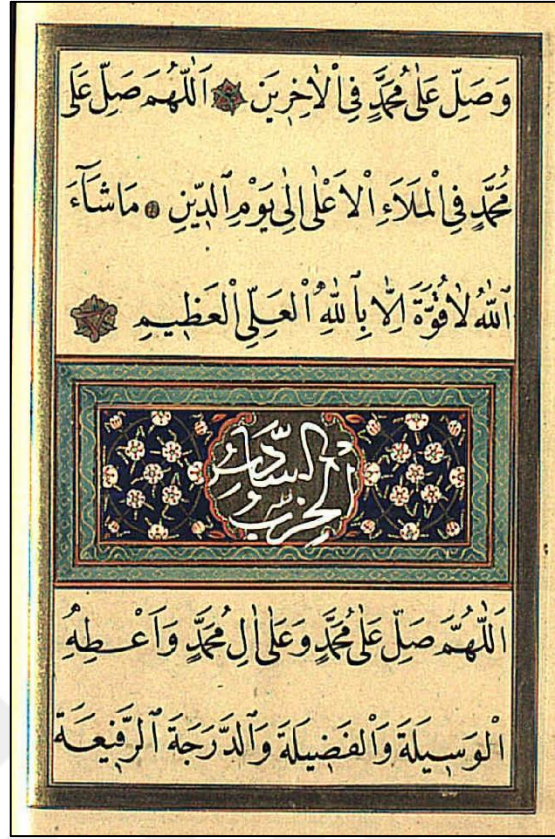 وَصَلِّ عَلٰى مُحَمَّدٍ فِى اْلاٰخِرِينَ اَللّٰهُمَّ صَلِّ عَلٰى
مُحَمَّدٍ فِى الْمَلَاءِ اْلاَعْلٰى اِلٰى يَوْمِ ٱلدِّينِ مَا شَآءَ
ٱللّٰهُ لَا قُوَّةَ اِلَّا بِٱللّٰهِ اْلعَلِىِّ اْلعَظِيمِ
اَلْحِزْبُ السَّادِسُ
اَللّٰهُمَّ صَلِّ عَلٰى مُحَمَّدٍ وَعَلٰى اٰلِ مُحَمَّدٍ وَاَعْطِهِ
اْلوَسِيلَةَ وَاْلفَضِيلَةَ وَٱلدَّرَجَةَ ٱلرَّفِيعَةَ